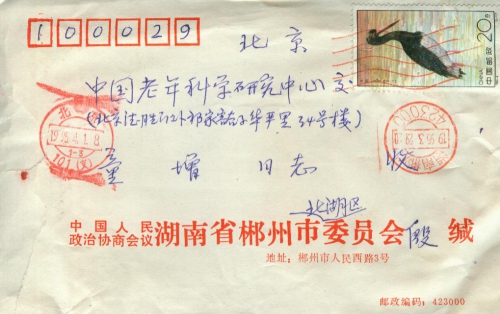 100029
北京
20分
中国邮政
中国老年科学研究中心交
(北京德胜门外祁家豁子华严里34号楼)
童增同志 收
北湖区
中国人民政治协商会议湖南省郴州市委员会 缄
地址：郴州市人民西路3号
邮政编码：423000